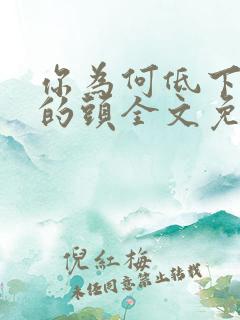 你為何低下
的頭全文免
倪紅梅
未經同意禁止轉載